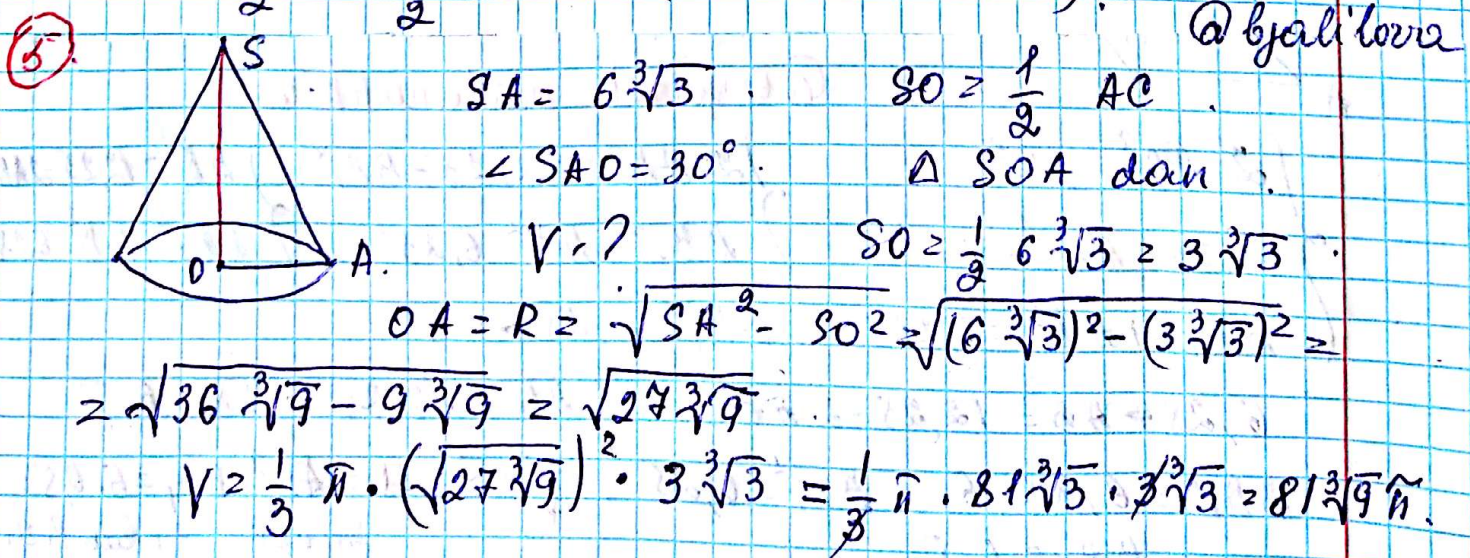 2 2
@bjalilova
5.
S
O
A.
SA = 6∛3. SO = 1/2 AC.
∠SAO = 30°. Δ SOA dan:
V-? SO = 1/2 6∛3 = 3∛3.
OA = R = √(SA² - SO²) = √((6∛3)² - (3∛3)²) =
= √(36∛9 - 9∛9) = √(27∛9)
V = 1/3 π · (√(27∛9))² · 3∛3 = 1/3 π · 81∛3 · 3∛3 = 81∛9 π.